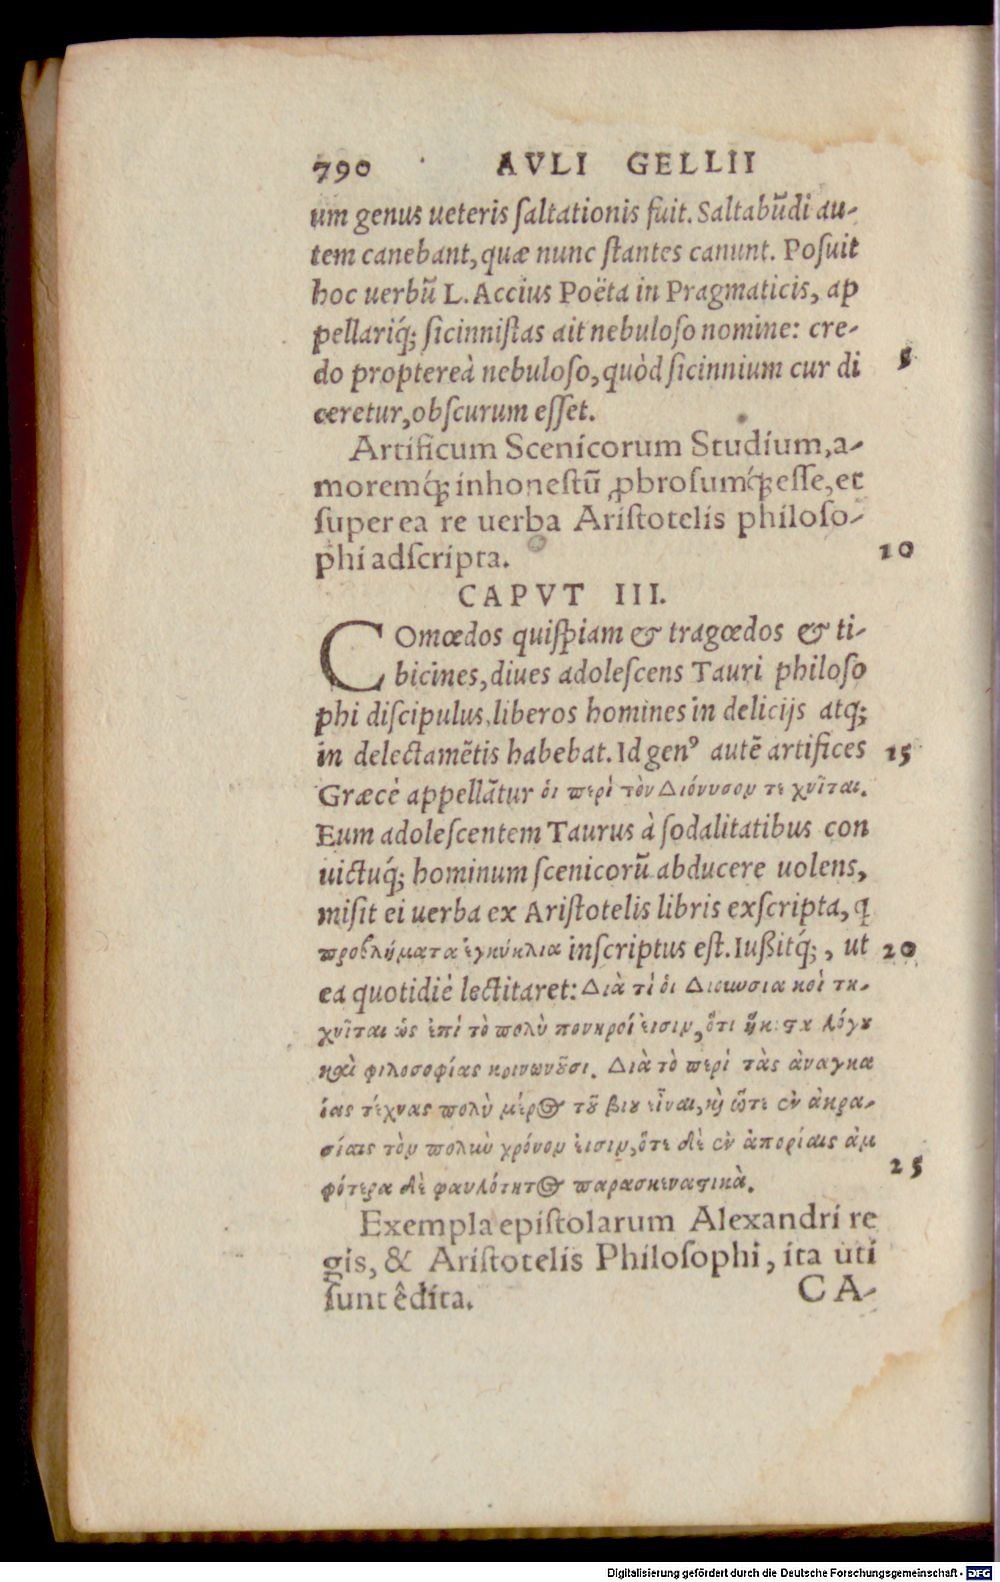 790 AVLI GELLII
um genus ueteris ſaltationis fuit. Saltabūdi au-
tem canebant, quæ nunc ſtantes canunt. Poſuit
hoc uerbū L. Accius Poëta in Pragmaticis, ap
pellariq́; ſicinniſtas ait nebuloſo nomine: cre-
do propterea̍ nebuloſo, quòd ſicinnium cur di 5
ceretur, obſcurum eſſet.
Artificum Scenicorum Studium, a-
moremq́; inhoneſtū ꝓbroſumq́; eſſe, et
ſuper ea re uerba Ariſtotelis philoſo-
phi adſcripta. 10
CAPVT III.
COmœdos quiſpiam & tragœdos & ti-
bicines, diues adoleſcens Tauri philoſo
phi diſcipulus, liberos homines in delicijs atq;
in delectamētis habebat. Id genꝰ autē artifices 15
Græcè appellātur ὁι περὶ τὸν Διόνυσον τεχνῖται.
Eum adoleſcentem Taurus à ſodalitatibus con
uictuq́; hominum ſcenicorū abducere uolens,
miſit ei uerba ex Ariſtotelis libris exſcripta, q
προβλήματα ἐγκύκλια inſcriptus eſt. Iußitq́;, ut 20
ea quotidiè lectitaret: Διὰ τί ὁι Διονυσιακοὶ τε-
χνῖται ὡς ἐπὶ τὸ πολὺ πονηροί ἐισιν, ὅτι ἥκιστα λόγου
καὶ φιλοσοφίας κοινωνοῦσι. Διὰ τὸ περὶ τὰς ἀναγκα
ίας τέχνας πολὺ μέρος τοῦ βίου εἶναι, καὶ ὅτε ἐν ἀκρα-
σίαις τὸν πολὺν χρόνον ἐισιν, ὅτε δὲ ἐν ἀπορίαις ἀμ
φότερα δὲ φαυλότητος παρασκευαστικά. 25
Exempla epiſtolarum Alexandri re
gis, & Ariſtotelis Philoſophi, ita uti
ſunt êdita.
CA-
Digitalisierung gefördert durch die Deutsche Forschungsgemeinschaft - DFG